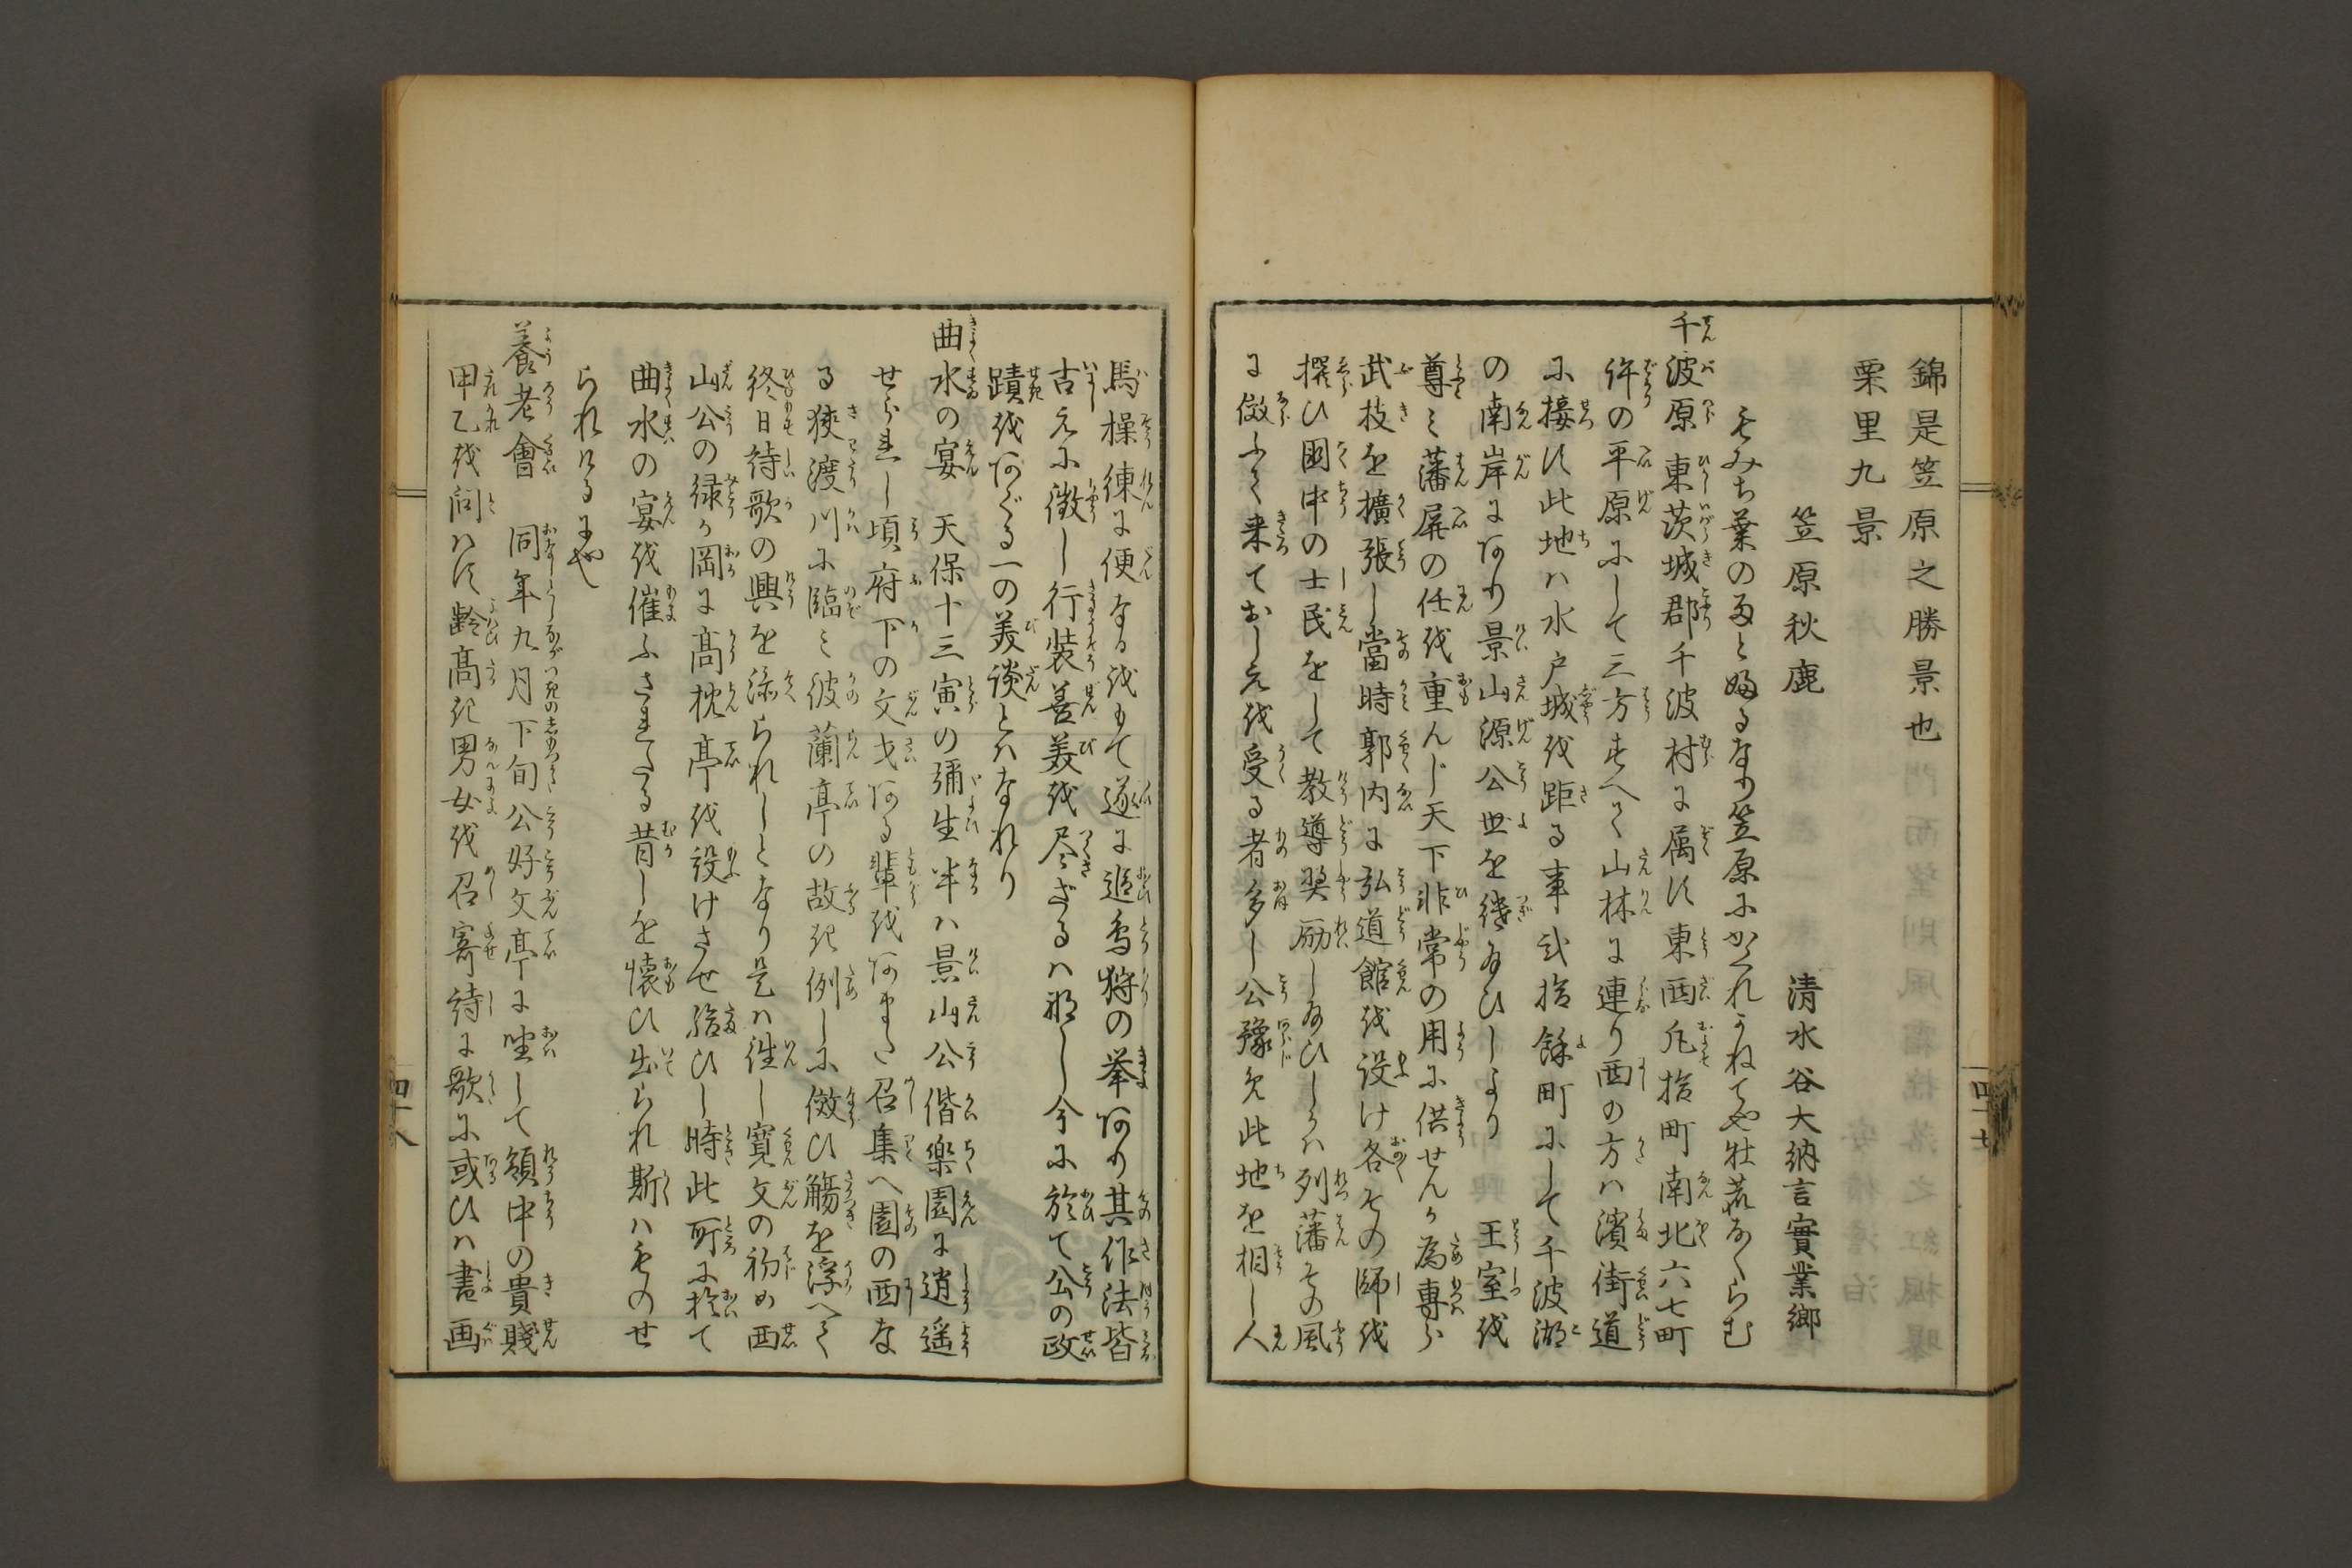 錦是笠原之勝景也
栗里九景
笠原秋鹿　清水谷大納言實業郷
もみち葉のなと婦るなり笠原にかくれかねてや牡鹿なくらむ
千波原　東茨城郡千波村に属す東西凡拾町南北六七町
許の平原にして三方すへて山林に連り西の方ハ濱街道
に接す此地ハ水戸城を距る事弐拾餘町にして千波湖
の南岸にあり景山源公世を継給ひしより　王室を
尊ミ藩屏の任を重んじ天下非常の用に供せんか為專ら
武技を擴張し當時郭内に弘道館を設け各その師を
撰ひ國中の士民をして教導奨励し給ひしかハ列藩その風
に倣ふて来ておしえを受る者多し公豫め此地を相し人
馬操練に便なるをもて遂に追鳥狩の挙あり其作法皆
古えに徴し行装善美を尽さゞるハ那し今に於て公の政
蹟をあぐる一の美談とハなれり
曲水の宴　天保十三寅の彌生半ハ景山公偕楽園に逍遥
せられし頃府下の文才ある輩をあまた召集へ園の西な
る狭渡川に臨ミ彼蘭亭の故き例しに倣ひ觴を浮へて
終日詩歌の興を添られしとなり是ハ往し寛文の初め西
山公の緑か岡に高枕亭を設けさせ給ひし時此所に於て
曲水の宴を催ふされたる昔しを懐ひ出られ斯ハものせ
られけるにや
養老會　同年九月下旬公好文亭に坐して領中の貴賤
甲乙を問ハす齢高き男女を召寄詩に歌に或ひハ書画
四十七
四十八